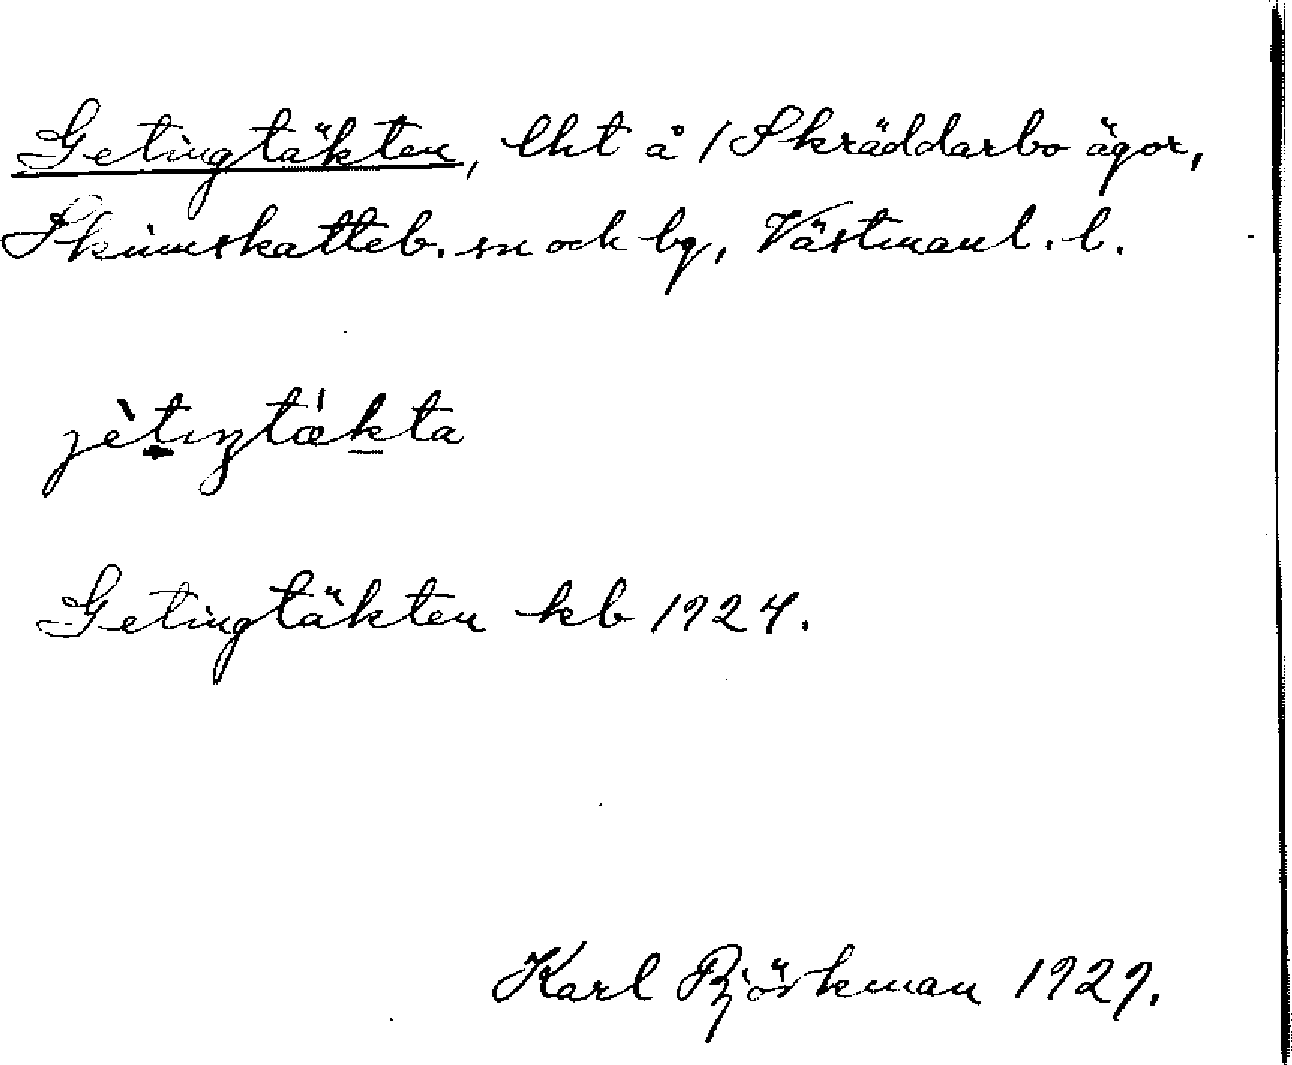 Getingtäkten, lht å / Skräddarbo ägor,
Skinnskatteb. sn och bg, Västmanl. l.
jètıŋtä́kta
Getingtäkten kb 1924.
Karl Björkman 1929.